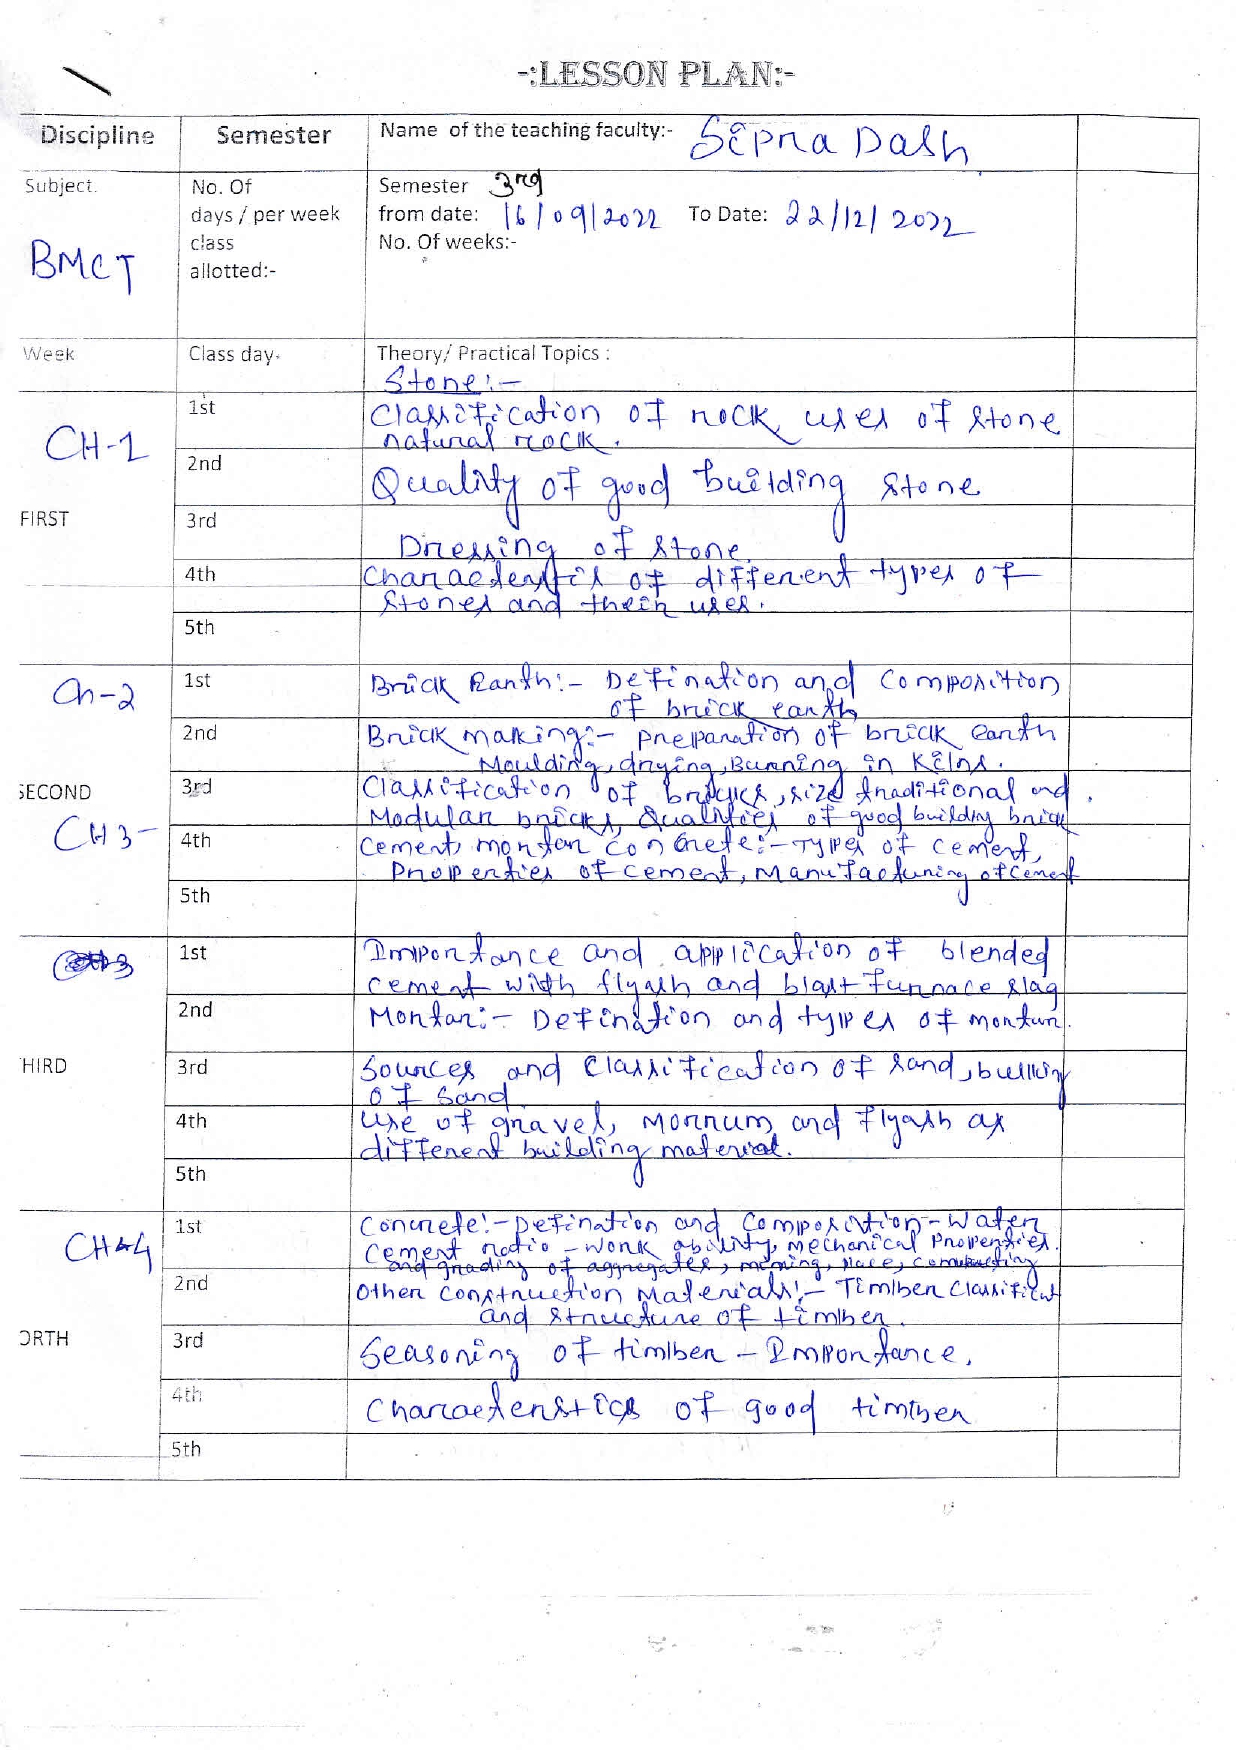 -:LESSON PLAN:-
Discipline Semester Name of the teaching faculty:- Sipra Dash
Subject. No. Of Semester 3rd
days / per week from date: 16/09/2022 To Date: 22/12/2022
class No. Of weeks:-
BMCT
allotted:-
Week Class day- Theory/ Practical Topics :
Stone:-
CH-1 1st Classification of rock uses of stone
natural rock.
2nd Quality of good building stone
FIRST 3rd
Dressing of stone.
4th different types of
stones and their uses.
5th
Ch-2 1st Brick Earth:- Defination and composition
of brick earth
2nd Brick making:- preparation of brick earth
Moulding, drying, Burning in Kilns.
SECOND 3rd Classification of bricks, size traditional and
Modular bricks, Qualities of good building brick
CH 3- 4th Cement, mortar concrete:- Types of cement,
Properties of cement, Manufacturing of cement
5th
1st Importance and application of blended
cement with flyash and blast furnace slag
2nd Mortar:- Defination and types of mortar.
HIRD 3rd Sources and Classification of sand, bulking
of sand
4th Use of gravel, Morrum and flyash as
different building material.
5th
CH-4 1st Concrete:- Defination and composition - Water
cement ratio - work ability, mechanical Properties
and grading of aggregates, mixing, place,
2nd Other construction Materials:- Timber
and structure of timber.
ORTH 3rd Seasoning of timber - Importance.
4th Characterstics of good timber
5th